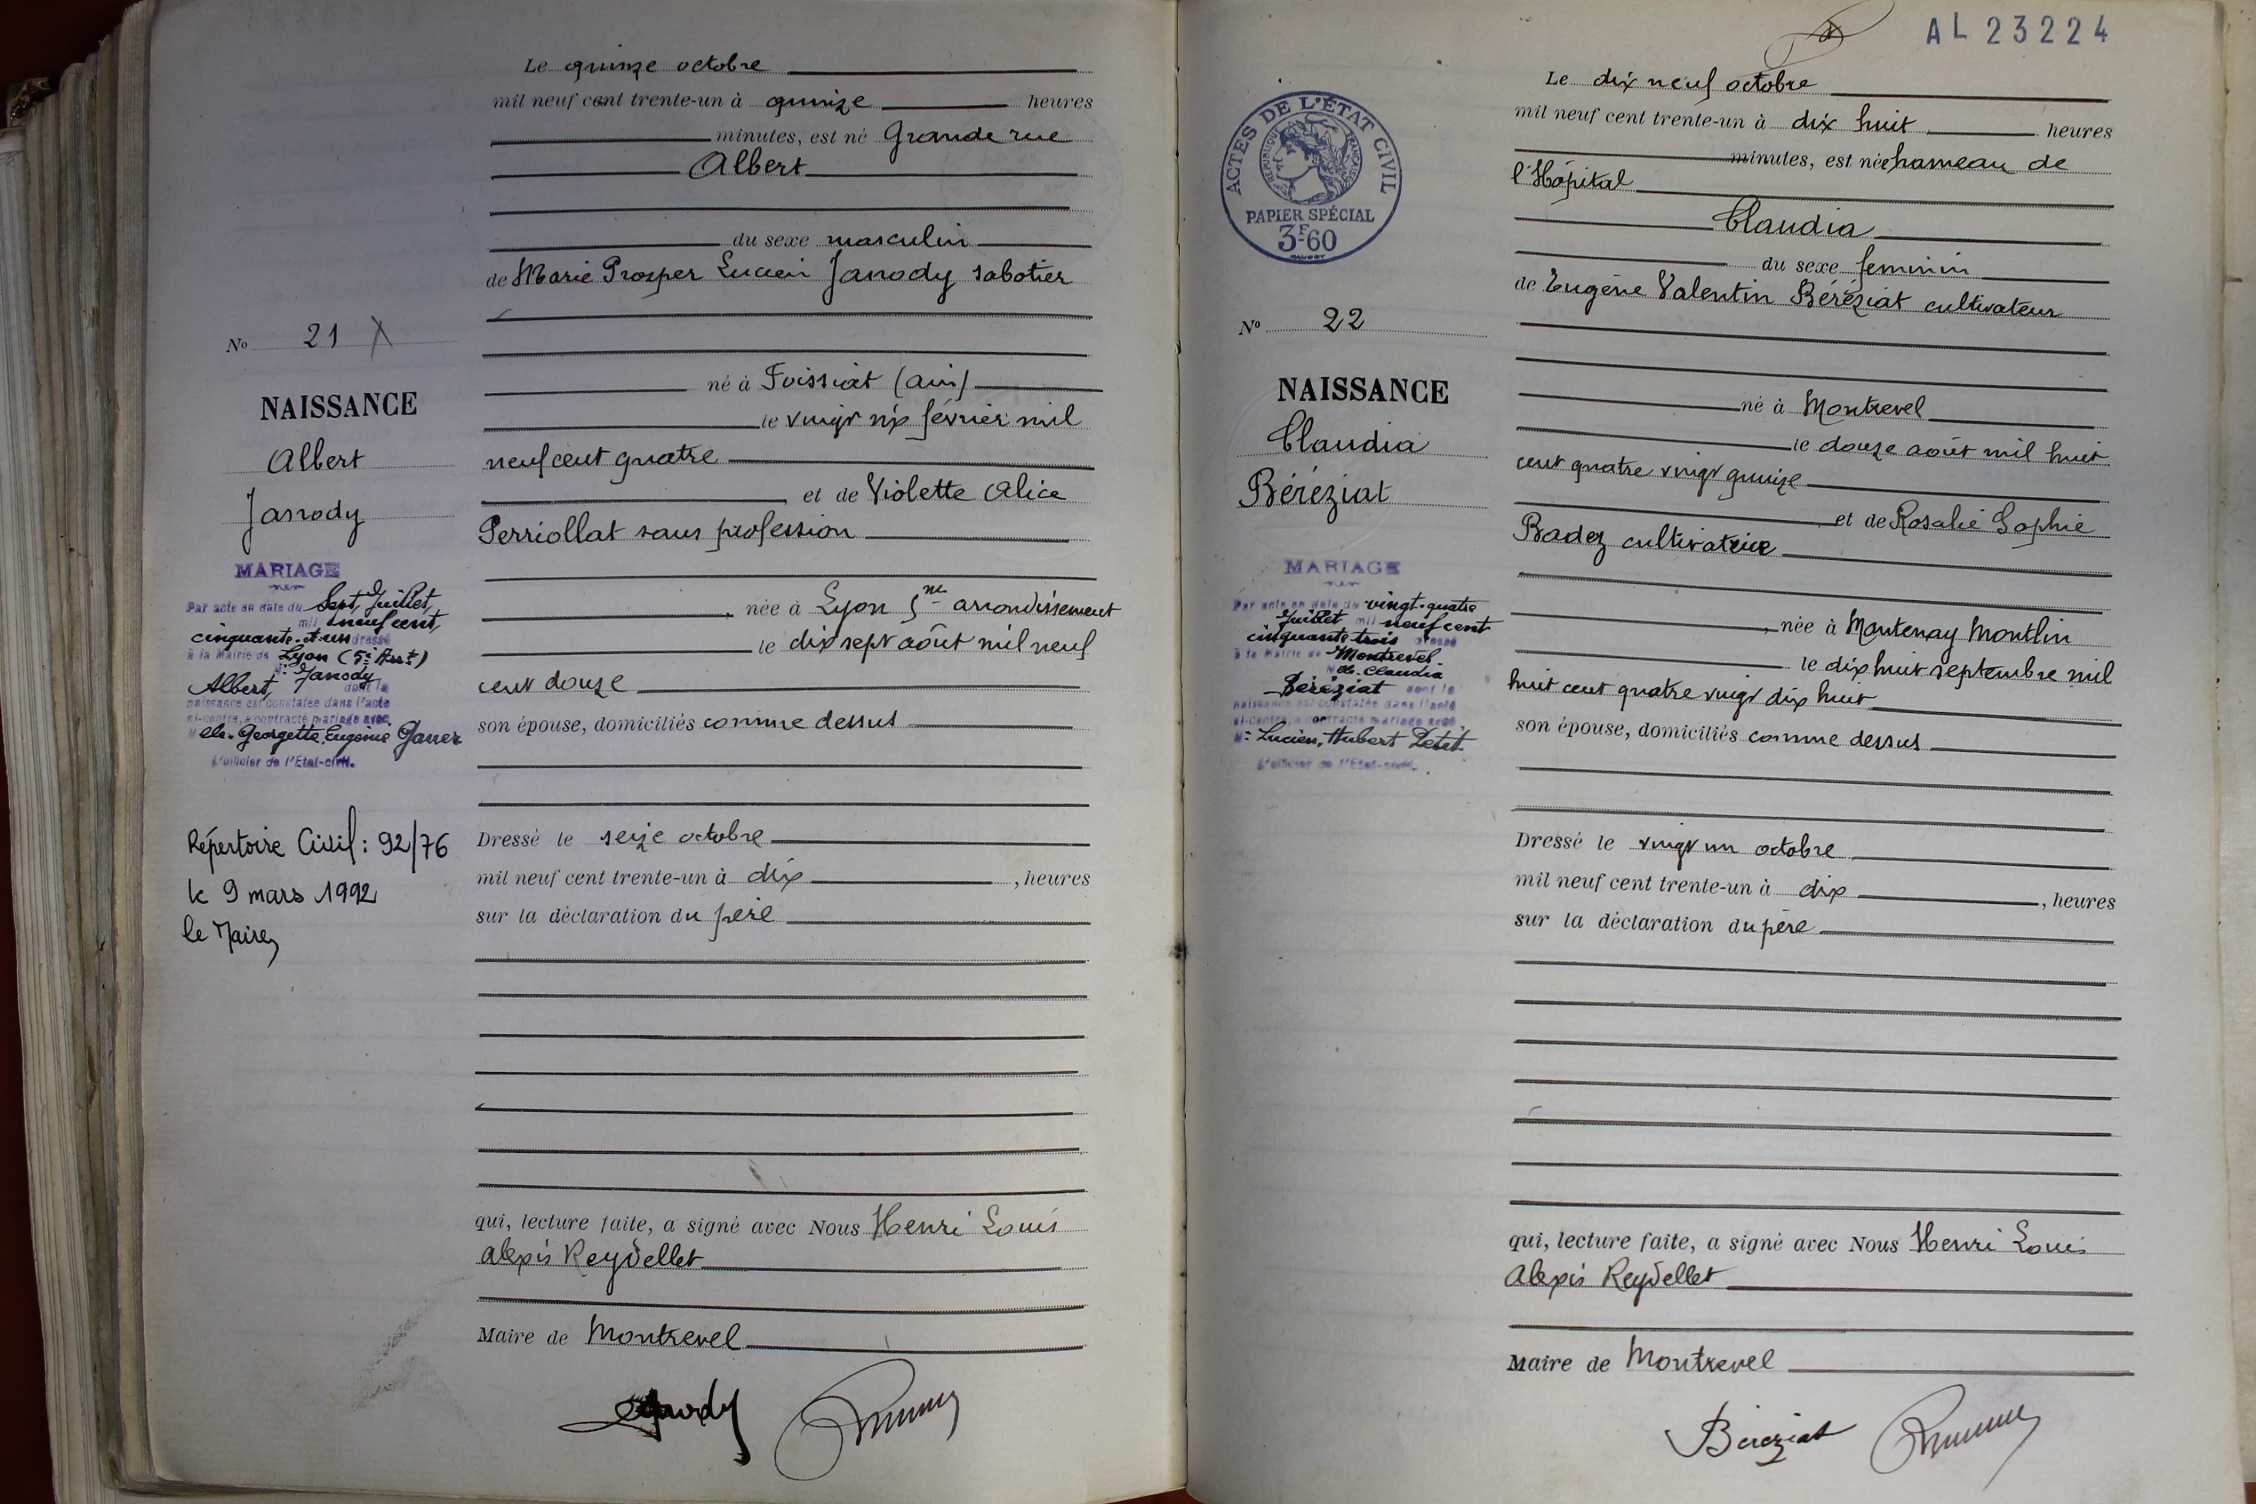 Le quinze octobre
mil neuf cent trente-un à quinze heures
minutes, est né Grande rue
Albert
du sexe masculin
de Marie Prosper Lucien Janody sabotier
né à Foissiat (ain)
le vingt six février mil
neuf cent quatre
et de Violette Alice
Perriollat sans profession
née à Lyon 5me arrondissement
le dix sept août mil neuf
cent douze
son épouse, domiciliés comme dessus
Dressé le seize octobre
mil neuf cent trente-un à dix , heures
sur la déclaration du père
qui, lecture faite, a signé avec Nous Henri Louis
Alexis Reydellet
Maire de Montrevel
Janody
No 21 X
NAISSANCE
Albert
Janody
MARIAGE
Par acte en date du Sept Juillet
mil neuf cent
cinquante-et-un dressé
à la Mairie de Lyon (5e Arrt)
M. Janody
Albert dont la
naissance est constatée dans l'acte
ci-contre, a contracté mariage avec
Melle Georgette, Eugénie
L'officier de l'Etat-civil.
Répertoire Civil : 92/76
le 9 mars 1992
le Maire,
AL 23224
ACTES DE L'ÉTAT CIVIL
RÉPUBLIQUE FRANÇAISE
PAPIER SPÉCIAL
3F60
Le dix neuf octobre
mil neuf cent trente-un à dix huit heures
minutes, est née hameau de
l'Hôpital
Claudia
du sexe feminin
de Eugène Valentin Béréziat cultivateur
né à Montrevel
le douze août mil huit
cent quatre vingt quinze
et de Rosalie Sophie
Badez cultivatrice
, née à Mantenay Montlin
le dix huit septembre mil
huit cent quatre vingt dix huit
son épouse, domiciliés comme dessus
Dressé le vingt un octobre
mil neuf cent trente-un à dix , heures
sur la déclaration du père
qui, lecture faite, a signé avec Nous Henri Louis
Alexis Reydellet
Maire de Montrevel
Béréziat
No 22
NAISSANCE
Claudia
Béréziat
MARIAGE
Par acte en date du vingt-quatre
Juillet mil neuf cent
cinquante trois dressé
à la Mairie de Montrevel.
Melle Claudia
Béréziat dont la
naissance est constatée dans l'acte
ci-contre, a contracté mariage avec
M. Lucien, Hubert Petit.
L'officier de l'Etat-civil.